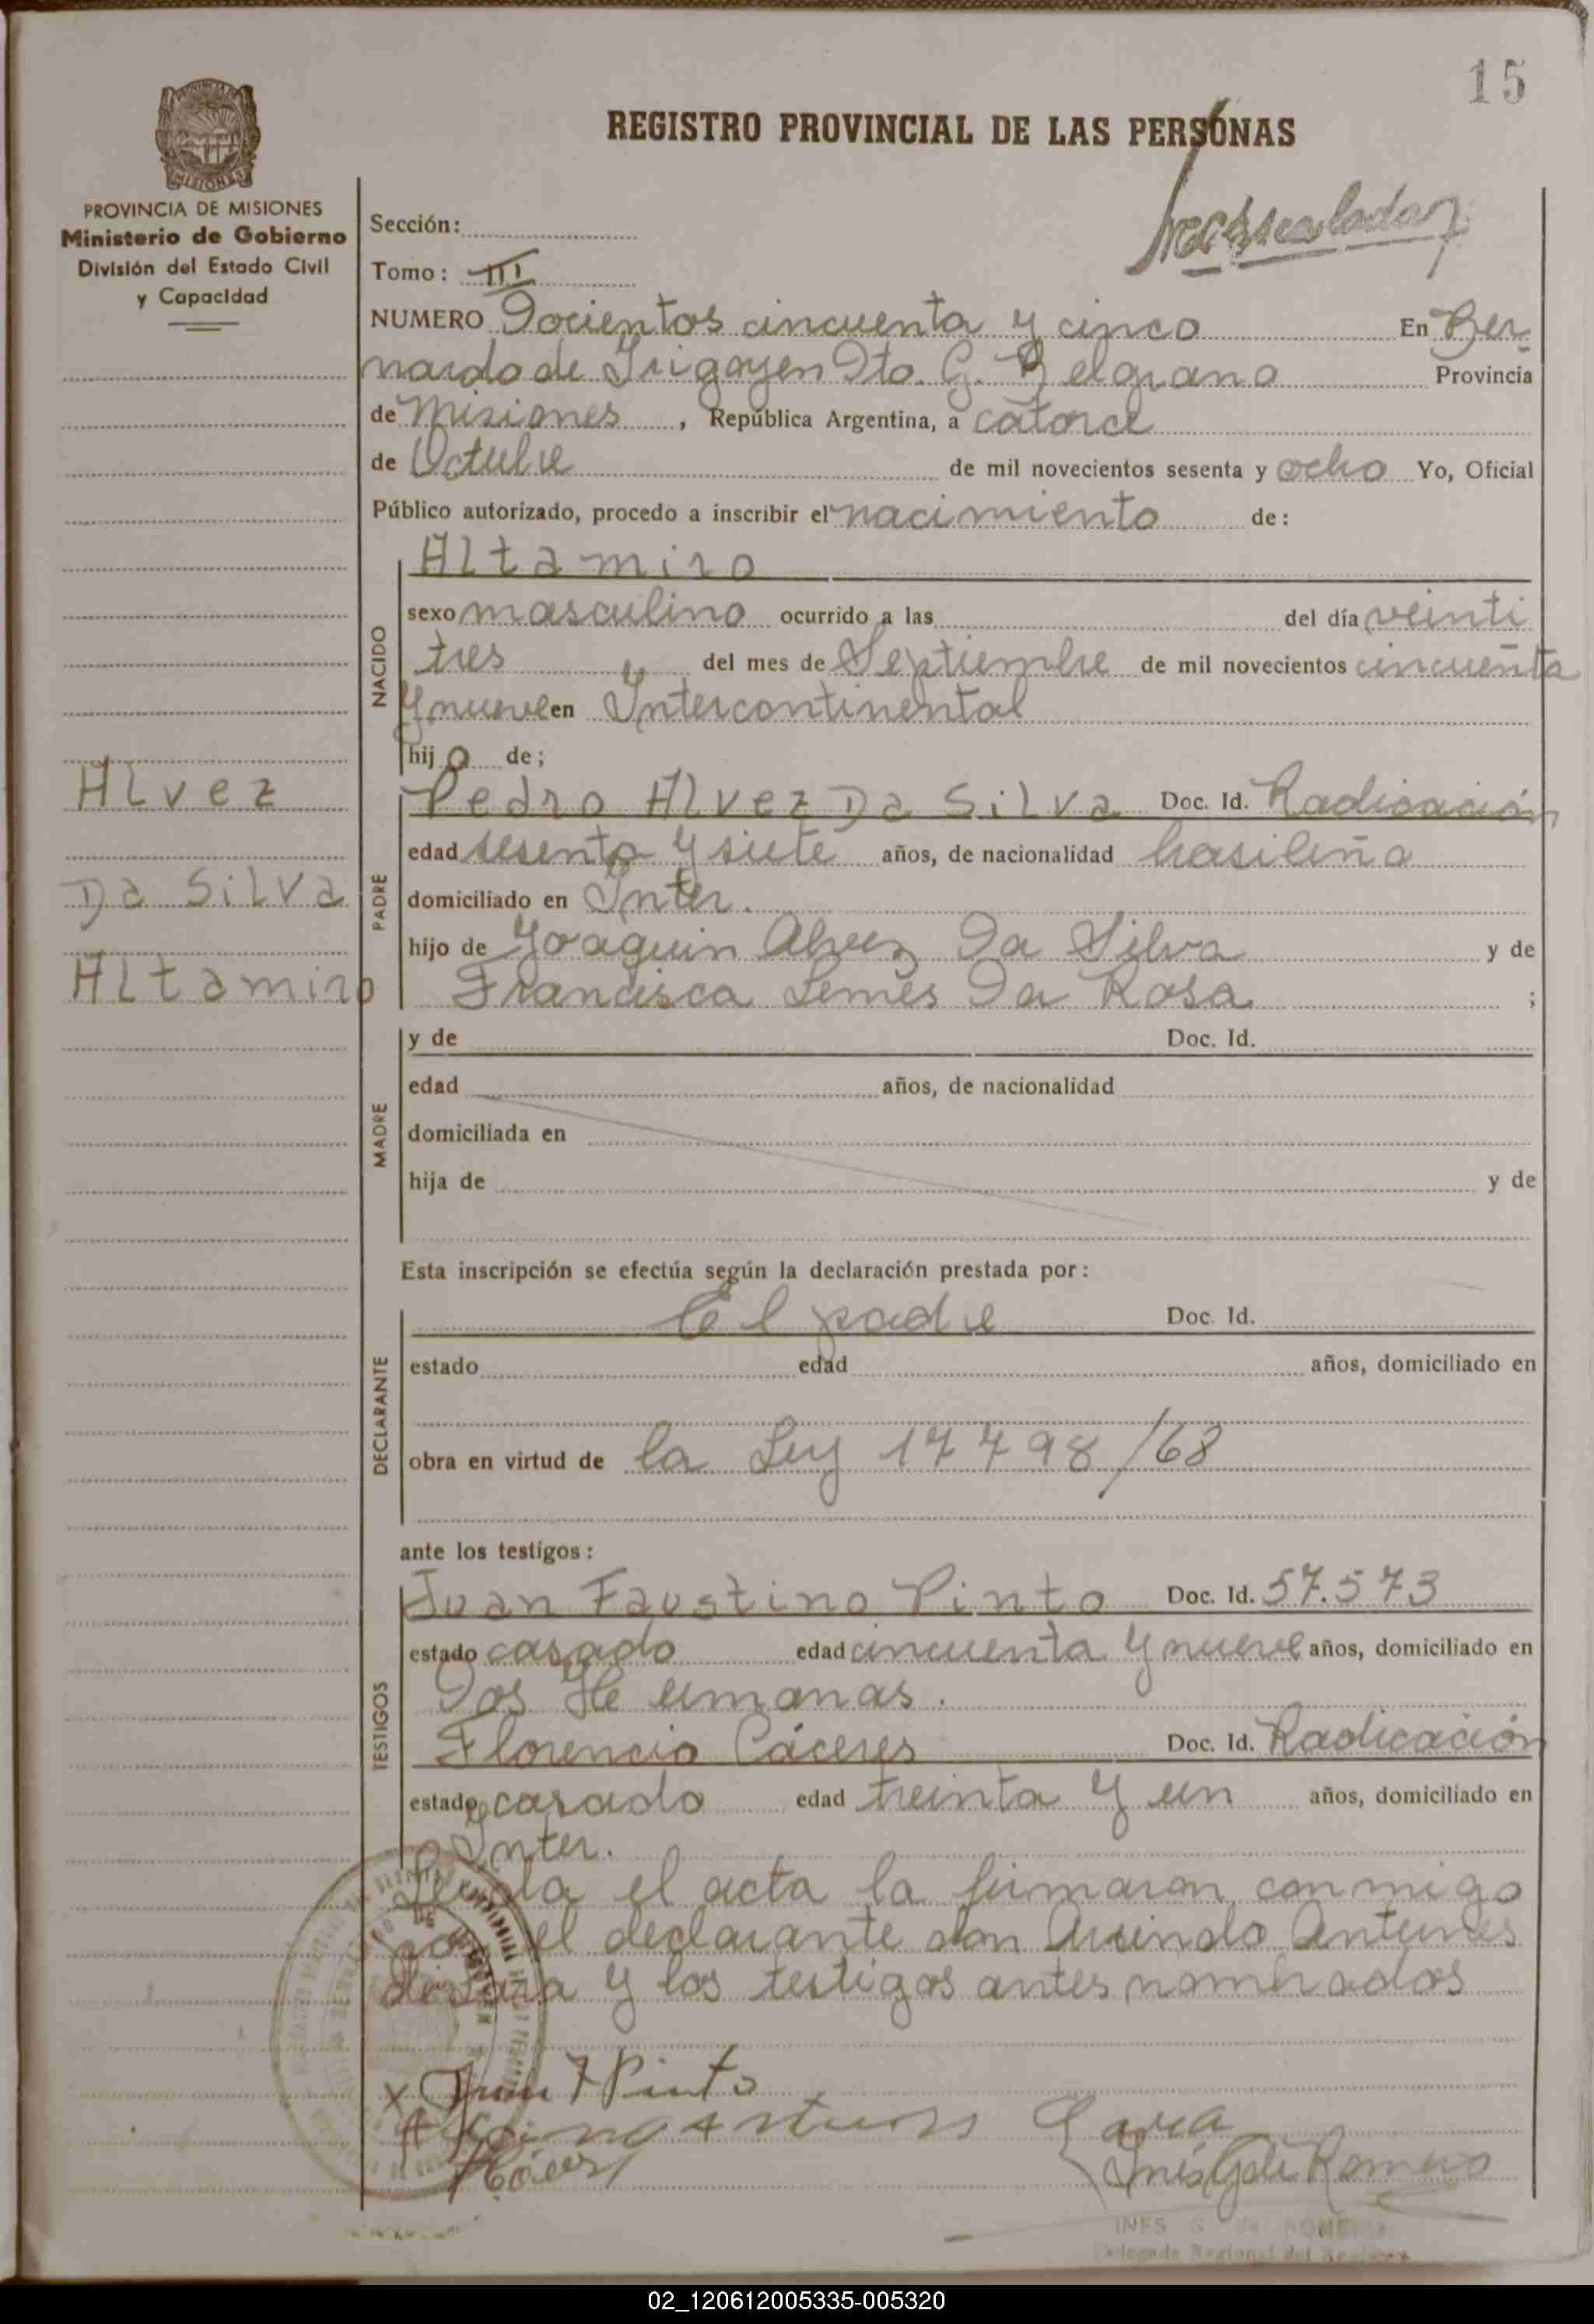 15
REGISTRO PROVINCIAL DE LAS PERSONAS
PROVINCIA DE MISIONES
Ministerio de Gobierno
División del Estado Civil
y Capacidad
Sección:
Tomo: III
NUMERO Docientos cincuenta y cinco En Ber
nardo de Irigoyen Dto. G. Belgrano Provincia
de Misiones, República Argentina, a catorce
de Octubre de mil novecientos sesenta y ocho Yo, Oficial
Público autorizado, procedo a inscribir el nacimiento de:
NACIDO
Altamiro
sexo masculino ocurrido a las del día veinti
tres del mes de Septiembre de mil novecientos cincuenta
y nueve en Intercontinental
hijo de;
Alvez
Da Silva
Altamiro
PADRE
Pedro Alvez Da Silva Doc. Id. Radicación
edad sesenta y siete años, de nacionalidad brasileña
domiciliado en Inter.
hijo de Joaquin Alvez Da Silva y de
Francisca Lemes Da Rosa ;
MADRE
y de Doc. Id.
edad años, de nacionalidad
domiciliada en
hija de y de
Esta inscripción se efectúa según la declaración prestada por:
DECLARANTE
El padre Doc. Id.
estado edad años, domiciliado en
obra en virtud de la Ley 17498/68
ante los testigos:
TESTIGOS
Juan Faustino Pinto Doc. Id. 57.573
estado casado edad cincuenta y nueve años, domiciliado en
Dos Hermanas.
Florencio Cáceres Doc. Id. Radicación
estado casado edad treinta y un años, domiciliado en
Inter.
el acta la firmaron conmigo
por el declarante don Antunes
y los testigos antes nombrados
Juan F Pinto
Inés G de Romero
INES G de ROMERO
Delegada Regional del Registro
02_120612005335-005320